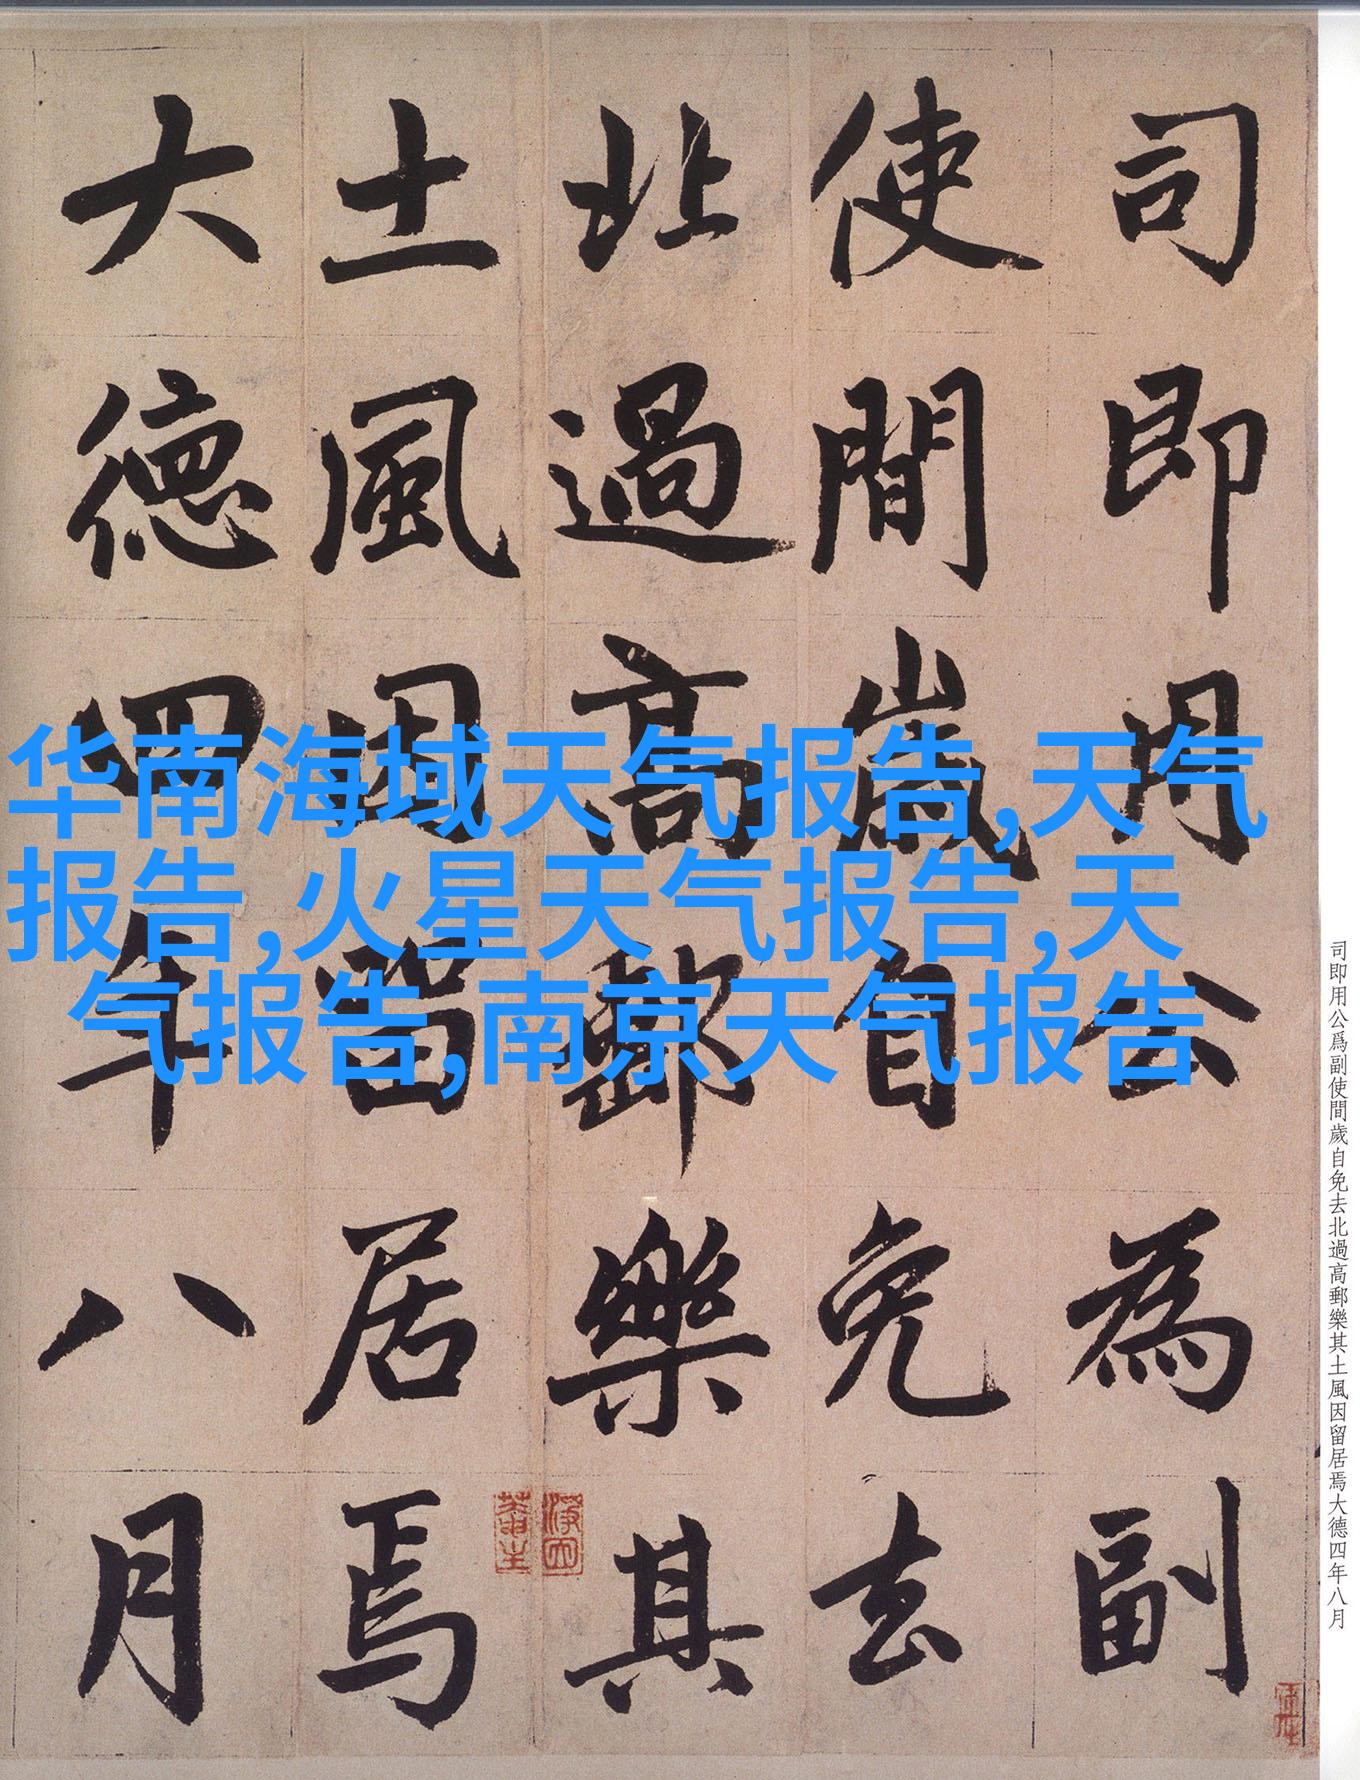 司即用公為副
使間歲自免去
北過高郵樂其
土風因留居焉
大德四年八月
华南海域天气报告,天气
报告,火星天气报告,天
气报告,南京天气报告
司即用公爲副使間歲自免去北過高郵樂其土風因留居焉大德四年八月